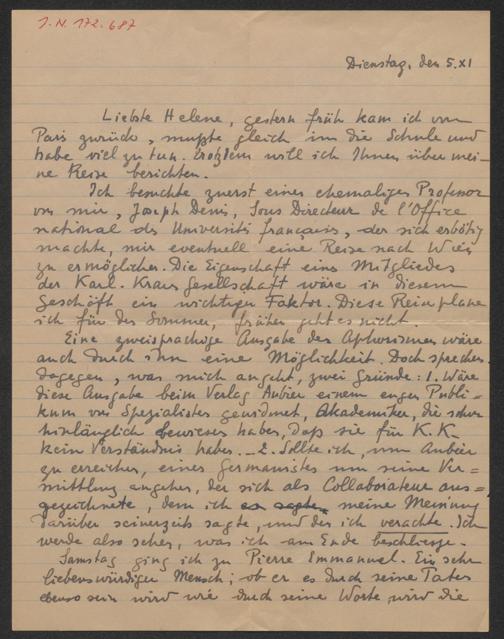 J.N. 172.687
Dienstag, den 5.XI
Liebste Helene, gestern früh kam ich von
Paris zurück, mußte gleich in die Schule und
habe viel zu tun. Trotzdem will ich Ihnen über mei-
ne Reise berichten.
Ich besuchte zuerst einen ehemaligen Professor
von mir, Joseph Denis, Sous Directeur de l'Office
national des Universités françaises, der sich erbötig
machte, mir eventuell eine Reise nach Wien
zu ermöglichen. Die Eigenschaft eines Mitgliedes
der Karl-Kraus Gesellschaft wäre in diesem
Geschäft ein wichtiger Faktor. Diese Reise plane
ich für den Sommer, früher geht es nicht.
Eine zweisprachige Ausgabe der Aphorismen wäre
auch durch ihn eine Möglichkeit. Doch sprechen
dagegen, was mich angeht, zwei Gründe: 1. Wäre
diese Ausgabe beim Verlag Aubier einem engen Publi-
kum von Spezialisten gewidmet, Akademiker, die schon
hinlänglich bewiesen haben, daß sie für K.K.
kein Verständnis haben. - 2. Sollte ich, um Aubier
zu erreichen, einen Germanisten um seine Ver-
mittlung angehen, der sich als Collaborateur aus-
gezeichnete, dem ich meine Meinung
darüber seinerzeit sagte, und den ich verachte. Ich
werde also sehen, was ich am Ende beschliesse.
Samstag ging ich zu Pierre Emmanuel. Ein sehr
liebenswürdiger Mensch; ob er es durch seine Taten
ebenso sein wird wie durch seine Worte, wird die